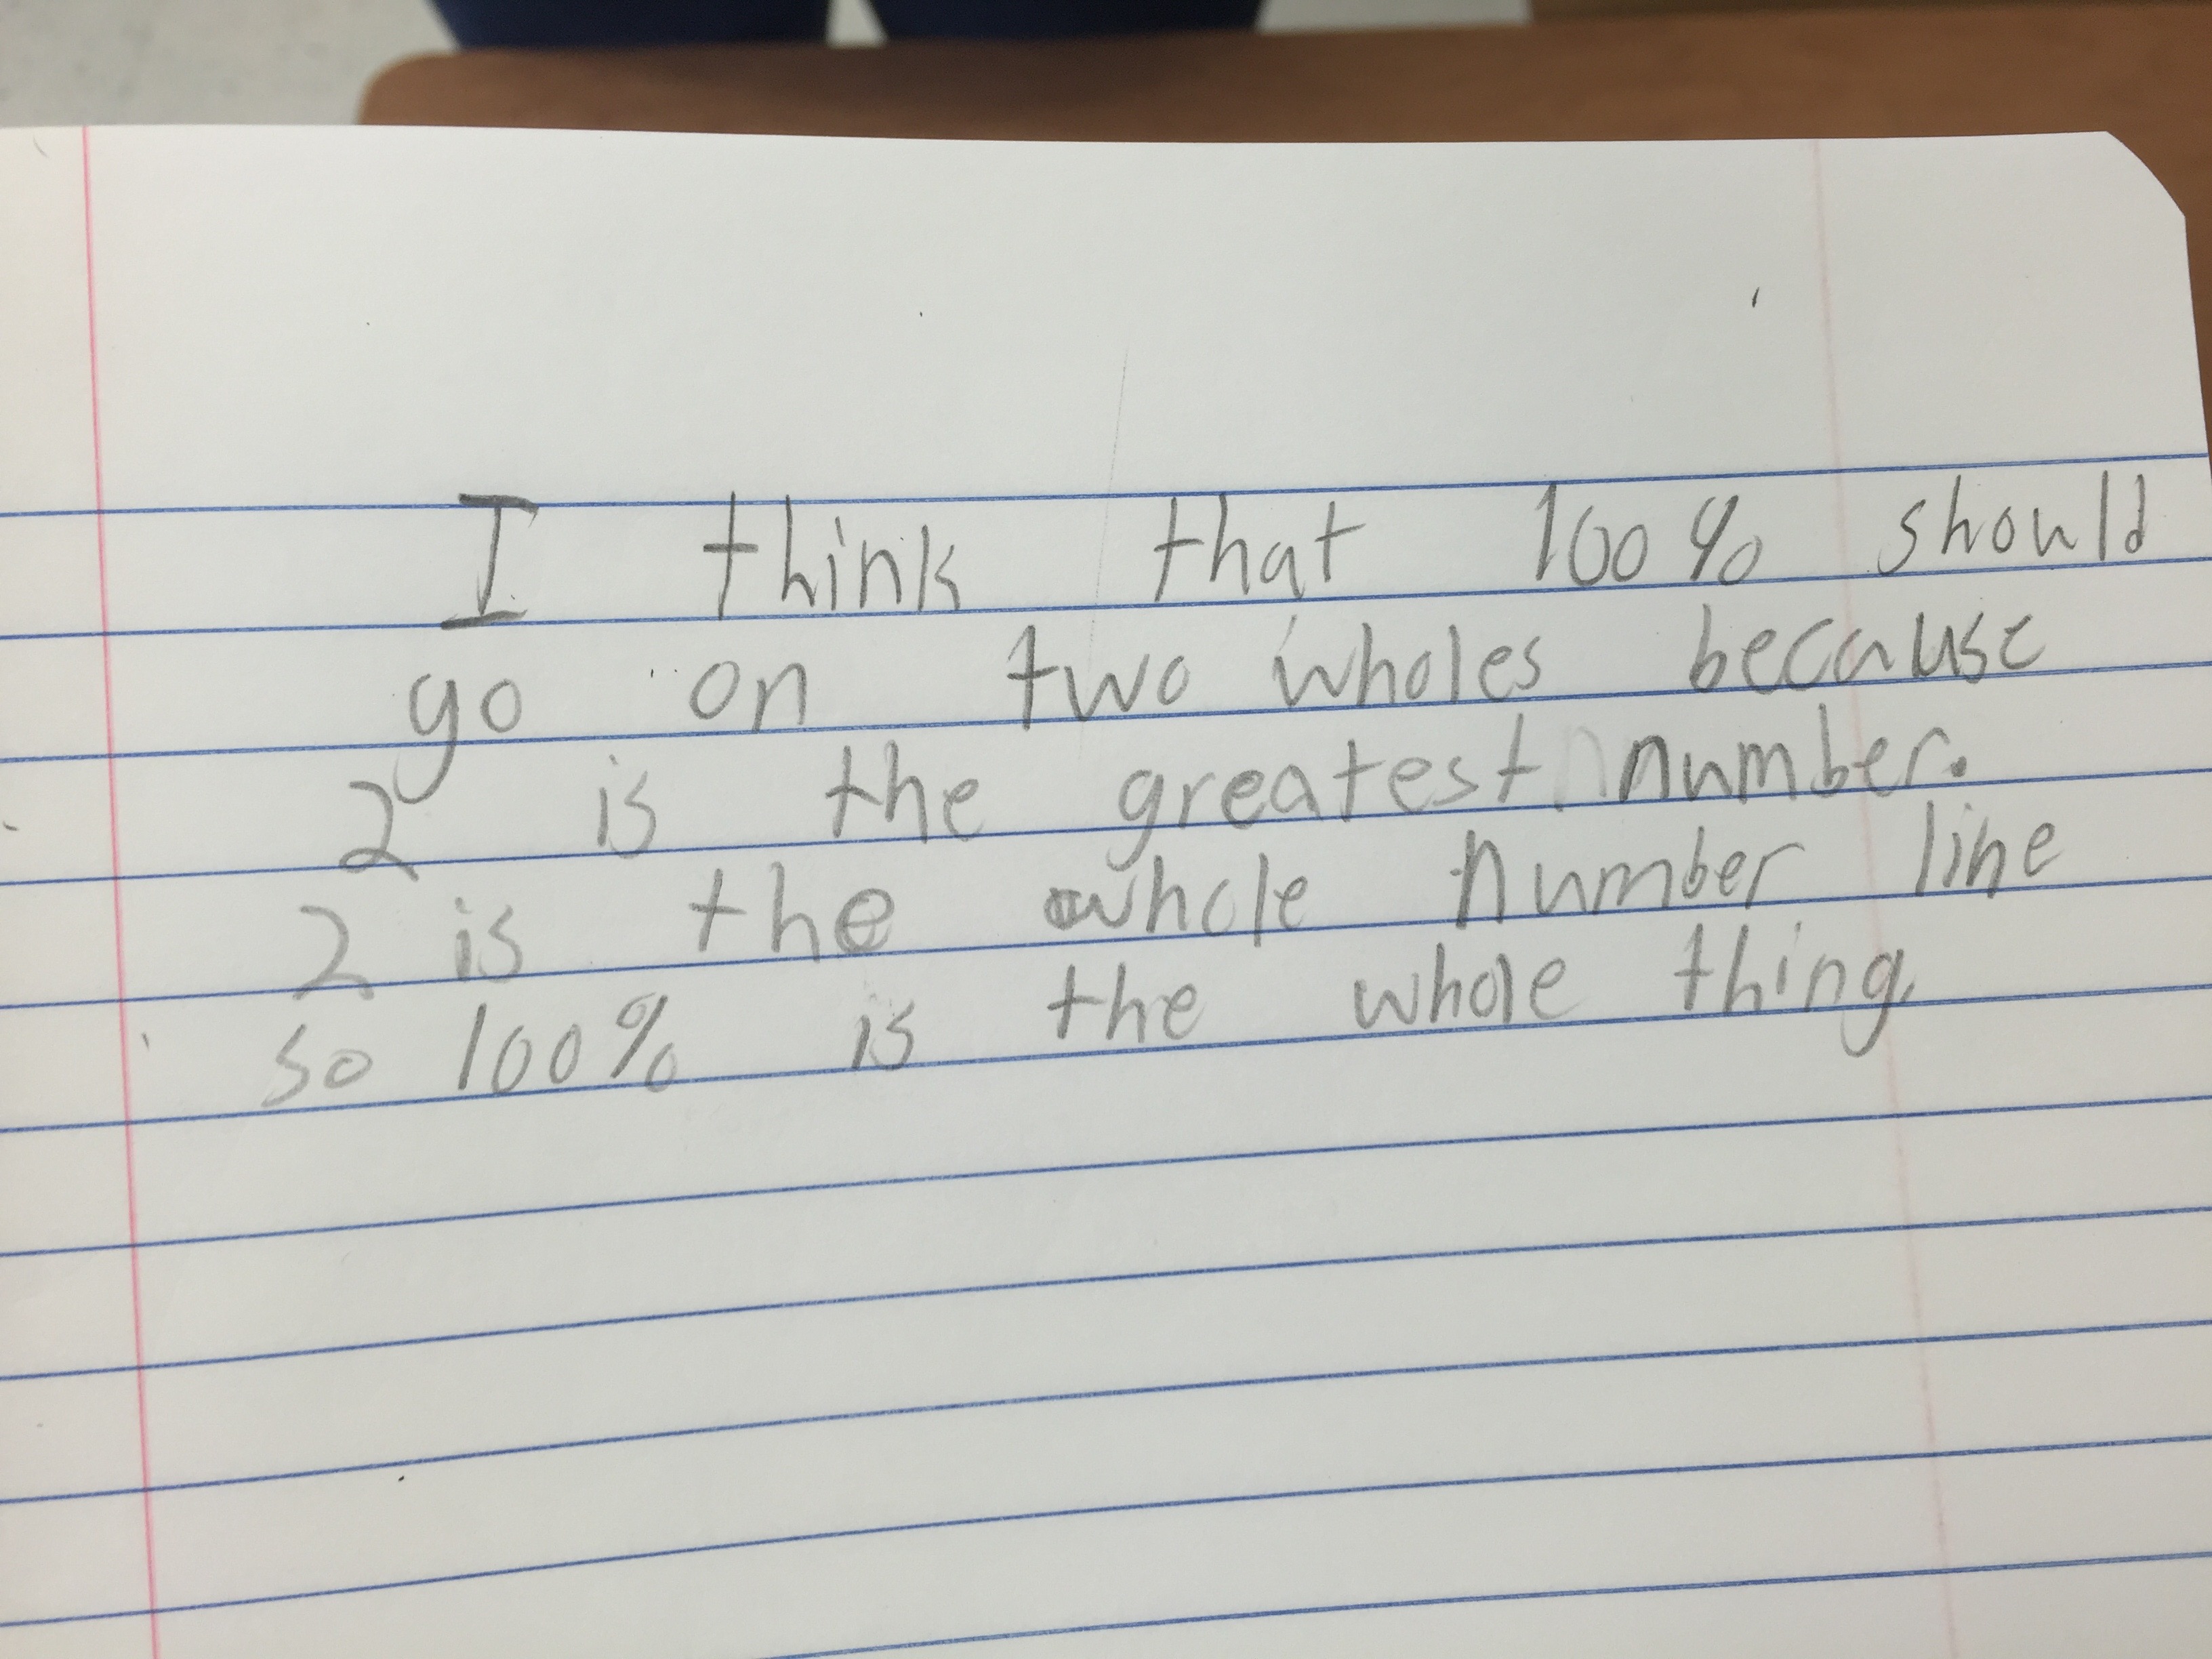 I think that 100% should
go on two wholes because
2 is the greatest number.
2 is the whole number line
so 100% is the whole thing.